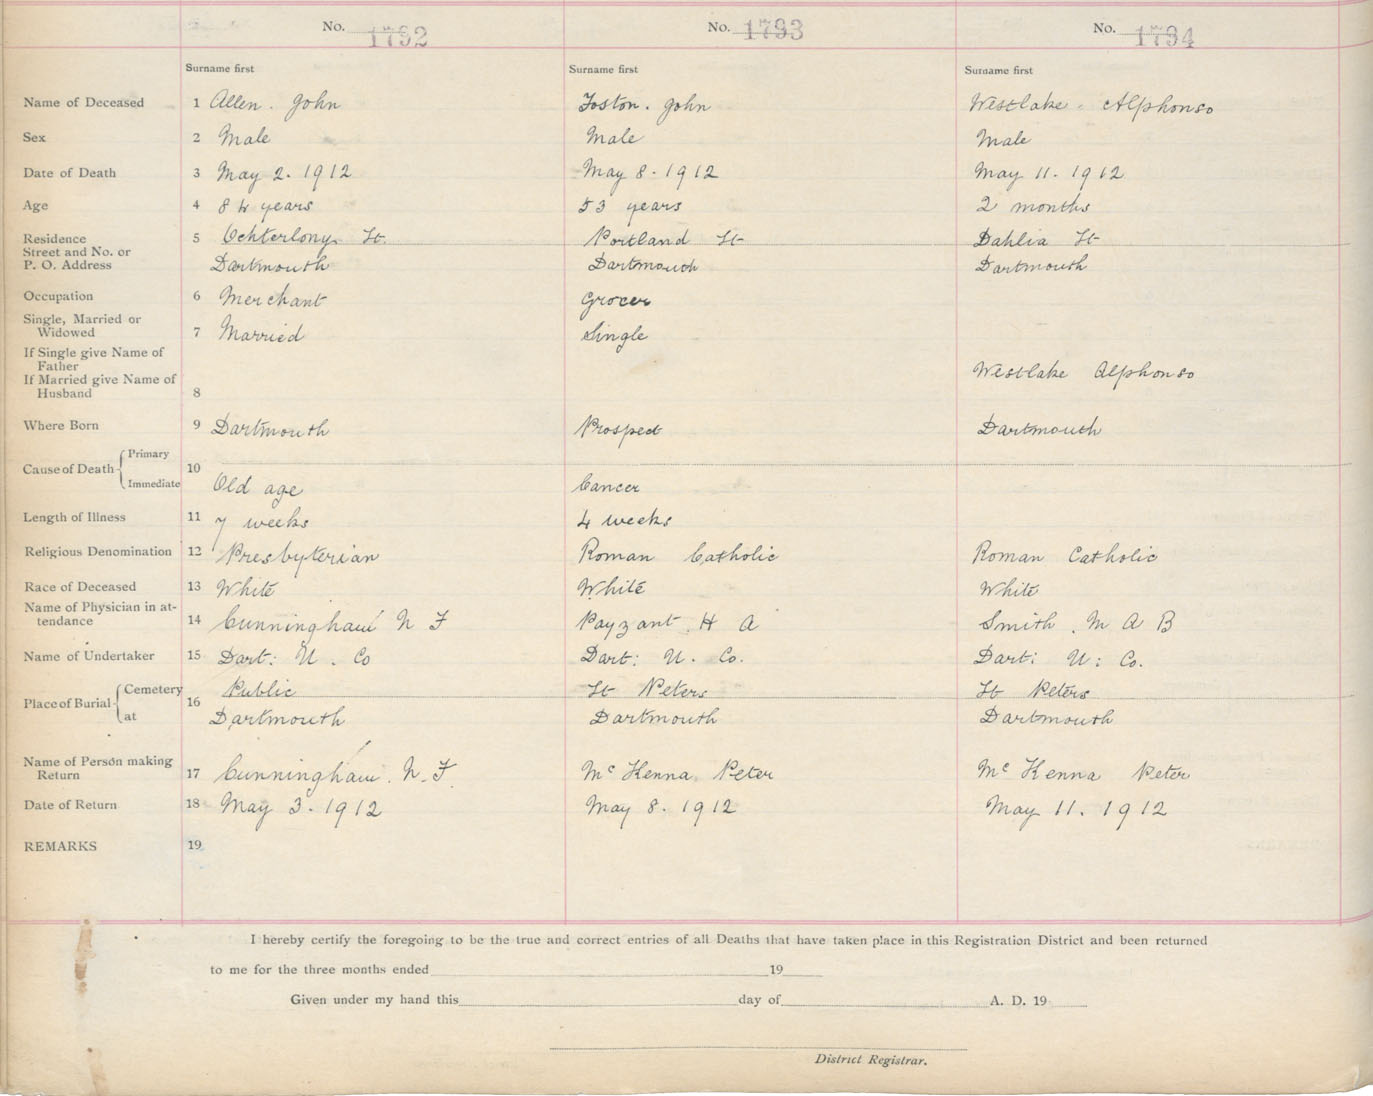 No. 1792 No. 1793 No. 1794
Surname first Surname first Surname first
Name of Deceased 1 Allen. John Foston. John Westlake. Alphonso
Sex 2 Male Male Male
Date of Death 3 May 2. 1912 May 8. 1912 May 11. 1912
Age 4 84 years 53 years 2 months
Residence 5 Ochterlony St. Portland St Dahlia St
Street and No. or
P. O. Address Dartmouth Dartmouth Dartmouth
Occupation 6 Merchant Grocer
Single, Married or
Widowed 7 Married Single
If Single give Name of
Father
Westlake Alphonso
If Married give Name of
Husband 8
Where Born 9 Dartmouth Prospect Dartmouth
Primary
Cause of Death 10
Immediate Old age Cancer
Length of Illness 11 7 weeks 4 weeks
Religious Denomination 12 Presbyterian Roman Catholic Roman Catholic
Race of Deceased 13 White White White
Name of Physician in at-
tendance 14 Cunningham N F Payzant. H A Smith. M A B
Name of Undertaker 15 Dart: U. Co Dart: U. Co. Dart: U: Co.
Cemetery Public St Peters St Peters
Place of Burial 16
at Dartmouth Dartmouth Dartmouth
Name of Person making
Return 17 Cunningham. N. F. McKenna Peter McKenna Peter
Date of Return 18 May 3. 1912 May 8. 1912 May 11. 1912
REMARKS 19
I hereby certify the foregoing to be the true and correct entries of all Deaths that have taken place in this Registration District and been returned
to me for the three months ended 19
Given under my hand this day of A. D. 19
District Registrar.